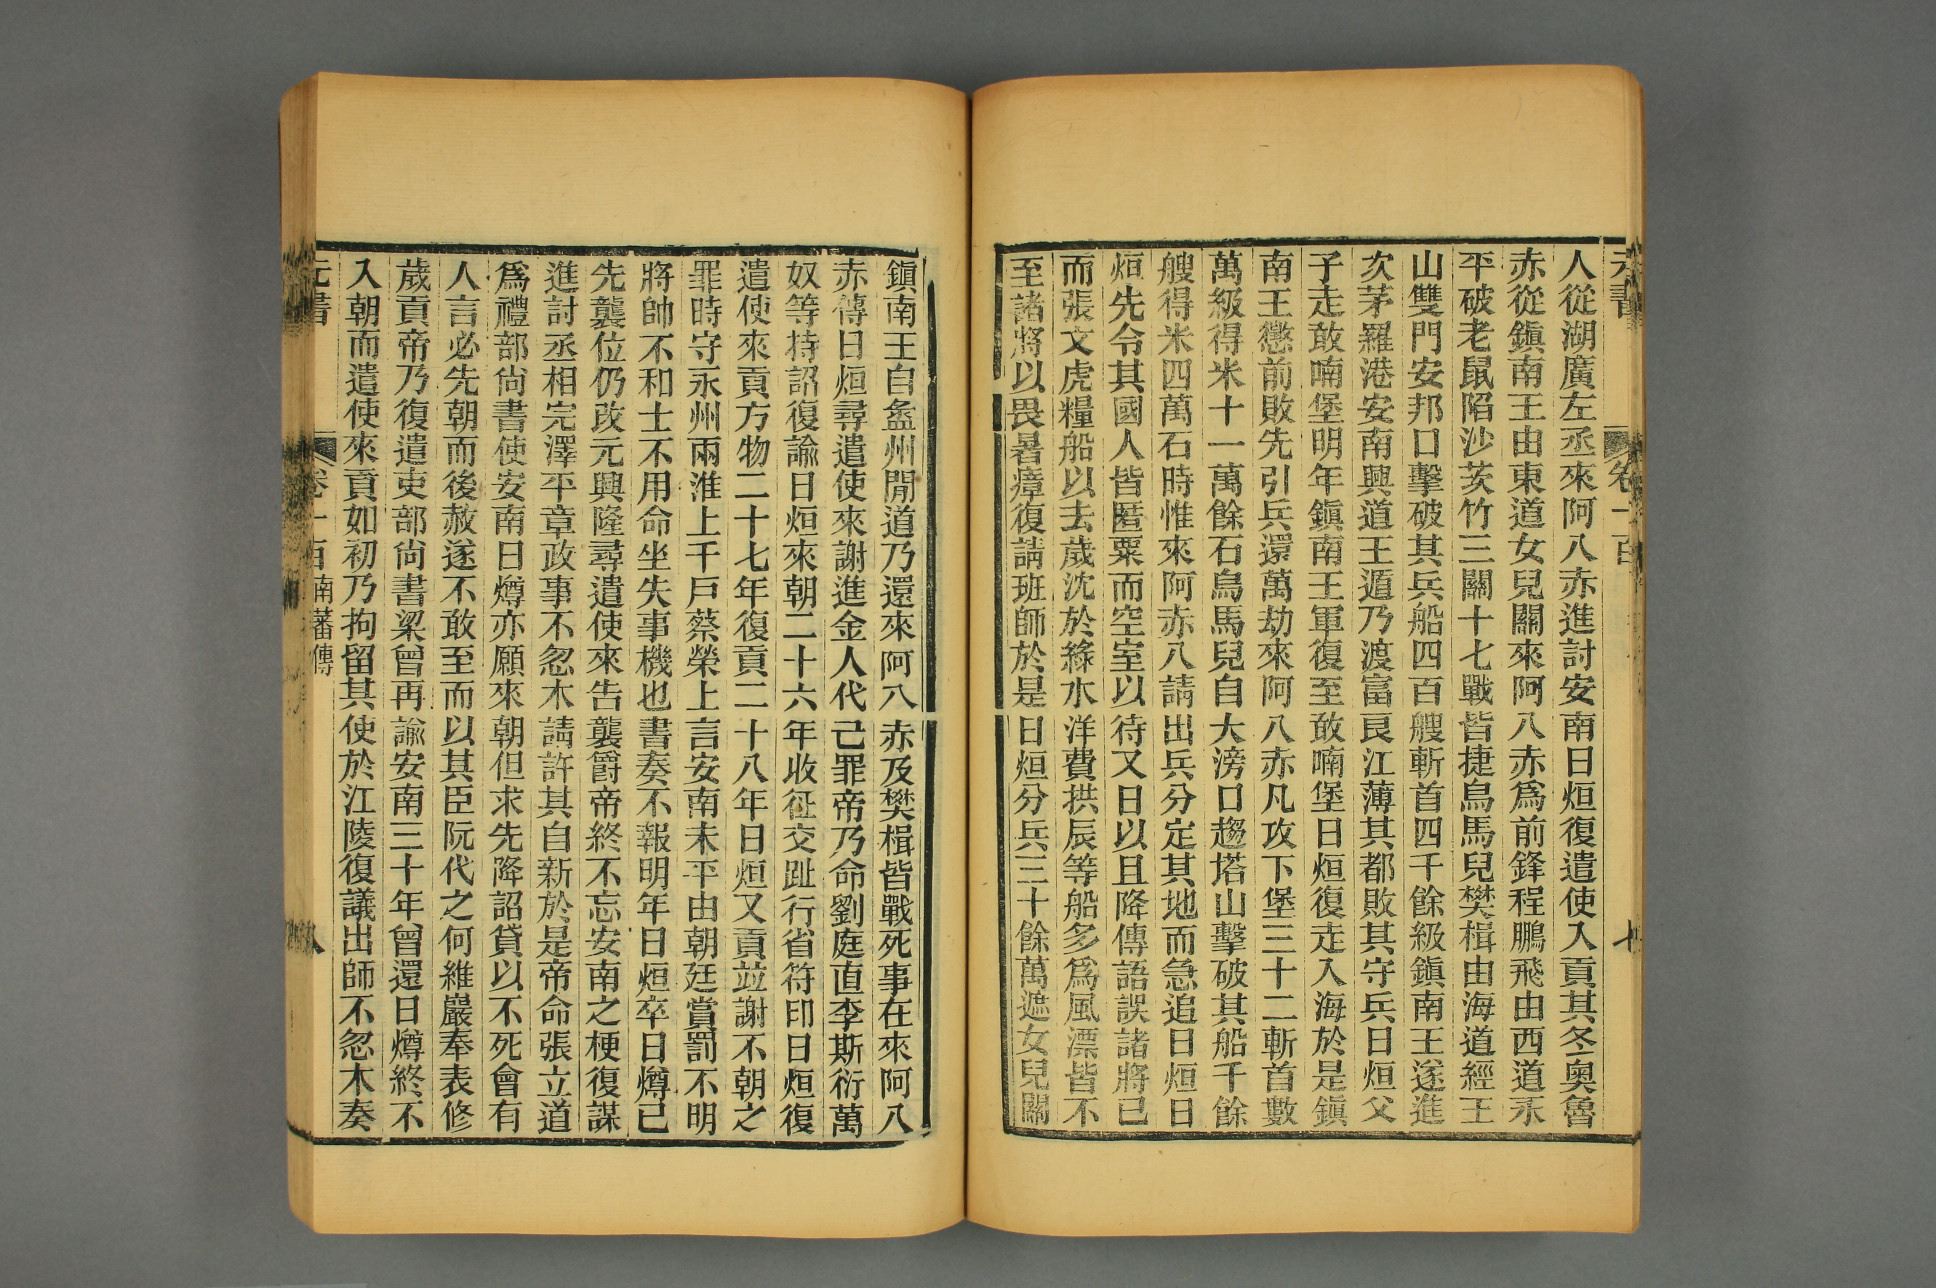 人從湖廣左丞來阿八赤進討安南日烜復遣使入貢其冬奧魯
赤從鎭南王由東道女兒關來阿八赤爲前鋒程鵬飛由西道永
平破老鼠陷沙茨竹三關十七戰皆捷烏馬兒樊楫由海道經玉
山雙門安邦口擊破其兵船四百艘斬首四千餘級鎭南王遂進
次茅羅港安南興道王遁乃渡富良江薄其都敗其守兵日烜父
子走敢喃堡明年鎭南王軍復至敢喃堡日烜復走入海於是鎭
南王懲前敗先引兵還萬劫來阿八赤凡攻下堡三十二斬首數
萬級得米十一萬餘石烏馬兒自大滂口趨塔山擊破其船千餘
艘得米四萬石時惟來阿赤八請出兵分定其地而急追日烜日
烜先令其國人皆匿粟而空室以待又日以且降傳語誤諸將已
而張文虎糧船以去歲沈於綠水洋費拱辰等船多爲風漂皆不
至諸將以畏暑瘴復請班師於是日烜分兵三十餘萬遮女兒關
鎭南王自盝州閒道乃還來阿八赤及樊楫皆戰死事在來阿八
赤傳日烜尋遣使來謝進金人代己罪帝乃命劉庭直李斯衍萬
奴等持詔復諭日烜來朝二十六年收征交趾行省符印日烜復
遣使來貢方物二十七年復貢二十八年日烜又貢並謝不朝之
罪時守永州兩淮上千戶蔡榮上言安南未平由朝廷賞罰不明
將帥不和士不用命坐失事機也書奏不報明年日烜卒日燇已
先襲位仍改元興隆尋遣使來告襲爵帝終不忘安南之梗復謀
進討丞相完澤平章政事不忽木請許其自新於是帝命張立道
爲禮部尙書使安南日燇亦願來朝但求先降詔貸以不死會有
人言必先朝而後赦遂不敢至而以其臣阮代之何維巖奉表修
歲貢帝乃復遣吏部尙書梁曾再諭安南三十年曾還日燇終不
入朝而遣使來貢如初乃拘留其使於江陵復議出師不忽木奏
元書
卷一百
南藩傳
八